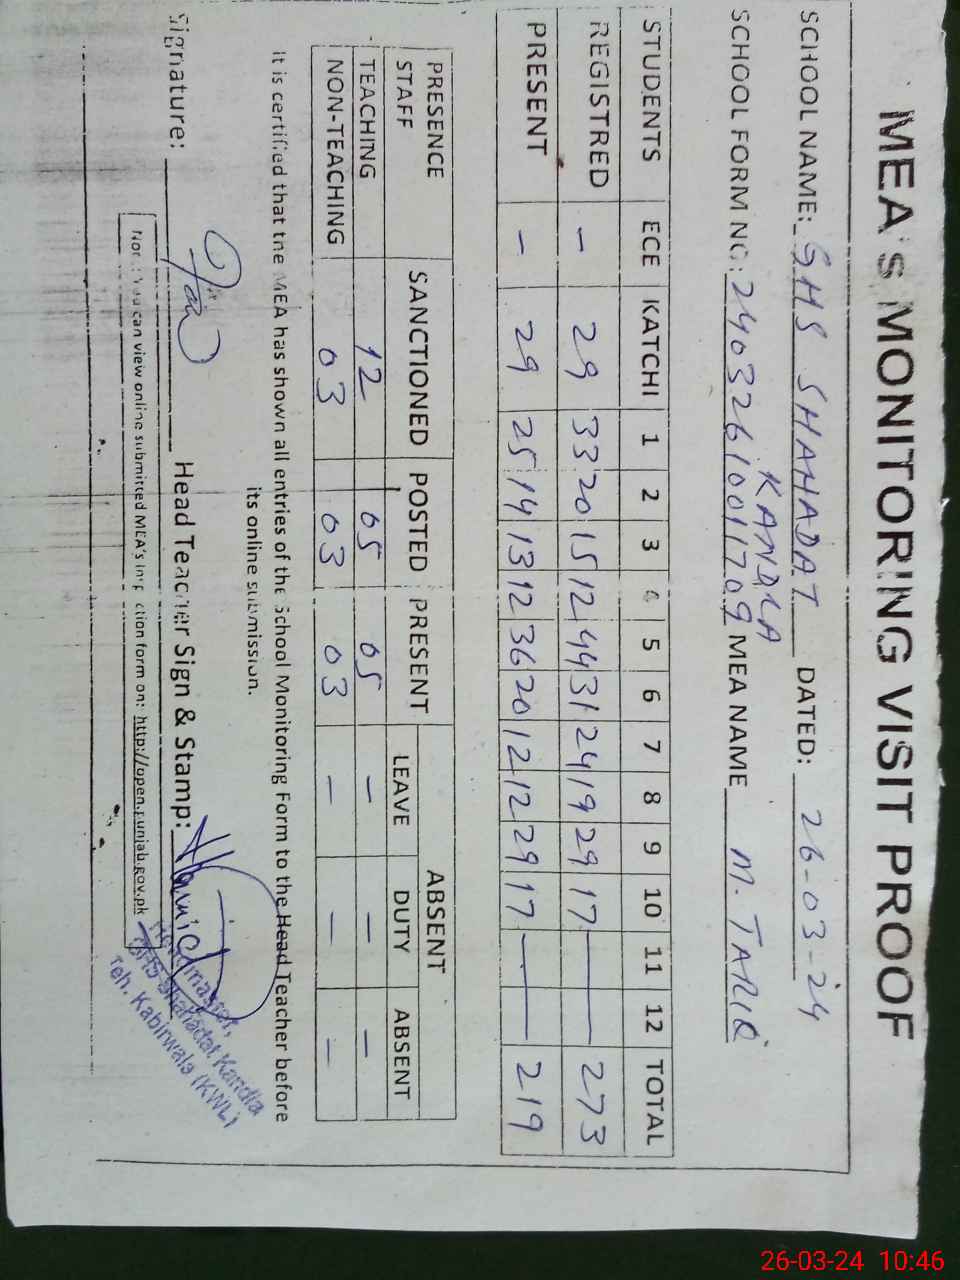 MEA's MONITORING VISIT PROOF
SCHOOL NAME: GHS SHAHADAT KANDLA DATED: 26-03-24
SCHOOL FORM NO: 2403261001709 MEA NAME M. TARIQ
STUDENTS ECE KATCHI 1 2 3 4 5 6 7 8 9 10 11 12 TOTAL
REGISTRED – 29 33 20 15 12 44 31 24 19 29 17 — — 273
PRESENT – 29 25 14 13 12 36 20 12 12 29 17 — — 219
PRESENCE STAFF SANCTIONED POSTED PRESENT ABSENT
LEAVE DUTY ABSENT
TEACHING 12 05 05 – – –
NON-TEACHING 03 03 03 – – –
It is certified that the MEA has shown all entries of the School Monitoring Form to the Head Teacher before
its online submission.
Signature: Head Teacher Sign & Stamp: Hamid
Headmaster,
GHS Shahadat Kandla
Teh. Kabirwala (KWL)
can view online submitted MEA's form on: http://open.punjab.gov.pk
26-03-24 10:46